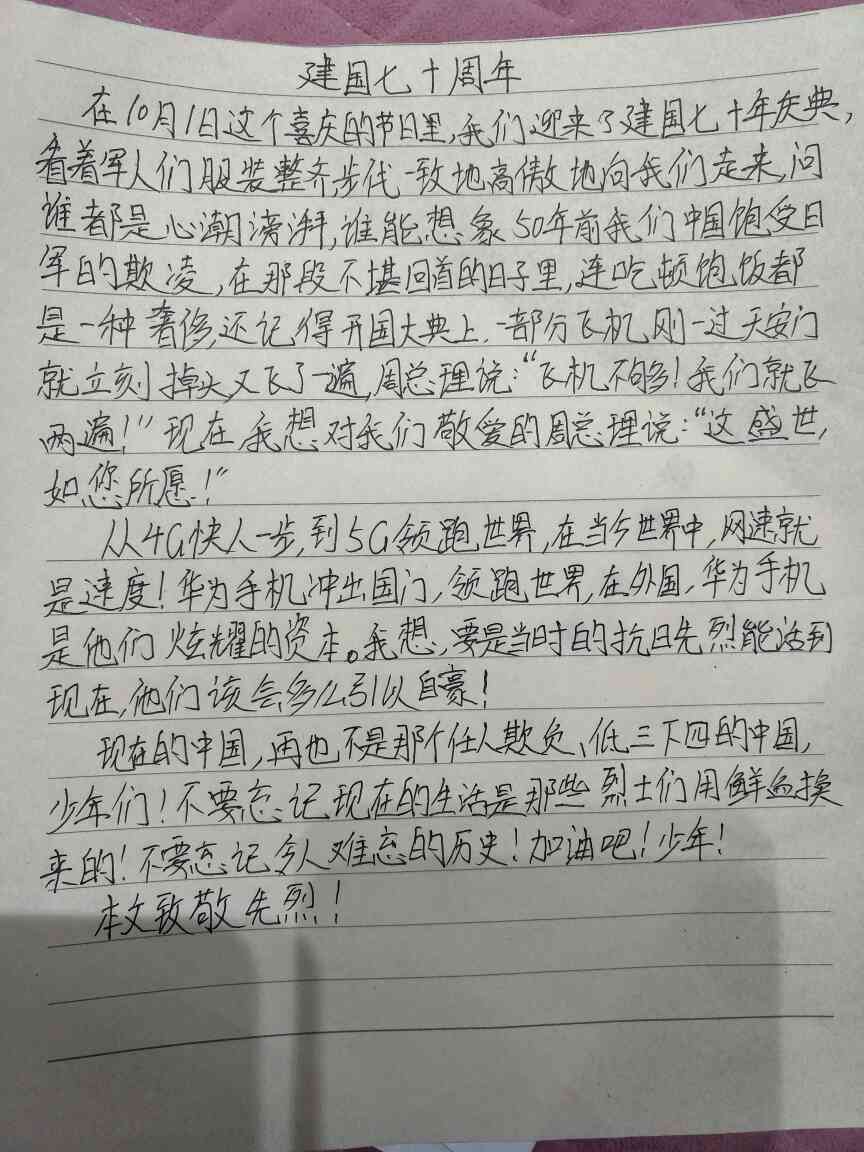 建国七十周年
在10月1日这个喜庆的节日里,我们迎来了建国七十年庆典,
看着军人们服装整齐步伐一致地高傲地向我们走来,问
谁都是心潮滂湃,谁能想象50年前我们中国饱受日
军的欺凌,在那段不堪回首的日子里,连吃顿饱饭都
是一种奢侈,还记得开国大典上,一部分飞机刚一过天安门
就立刻掉头又飞了一遍,周总理说:“飞机不够多!我们就飞
两遍!”现在我想对我们敬爱的周总理说:“这盛世,
如您所愿!”
从4G快人一步,到5G领跑世界,在当今世界中,网速就
是速度!华为手机冲出国门,领跑世界,在外国,华为手机
是他们炫耀的资本。我想,要是当时的抗日先烈能活到
现在,他们该会多么引以自豪!
现在的中国,再也不是那个任人欺负、低三下四的中国,
少年们!不要忘记现在的生活是那些烈士们用鲜血换
来的!不要忘记令人难忘的历史!加油吧!少年!
本文致敬先烈!